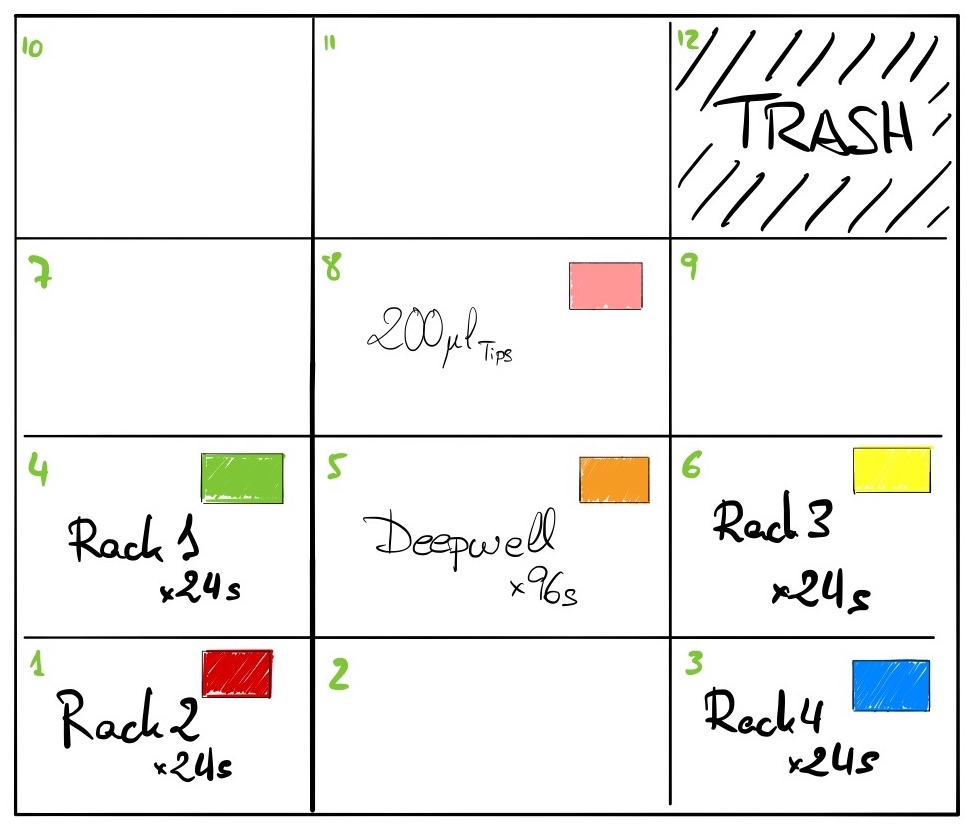 10
11
12
TRASH
7
8
200µl Tips
9
4
Rack 1
x24s
5
Deepwell
x96s
6
Rack 3
x24s
1
Rack 2
x24s
2
3
Rack 4
x24s